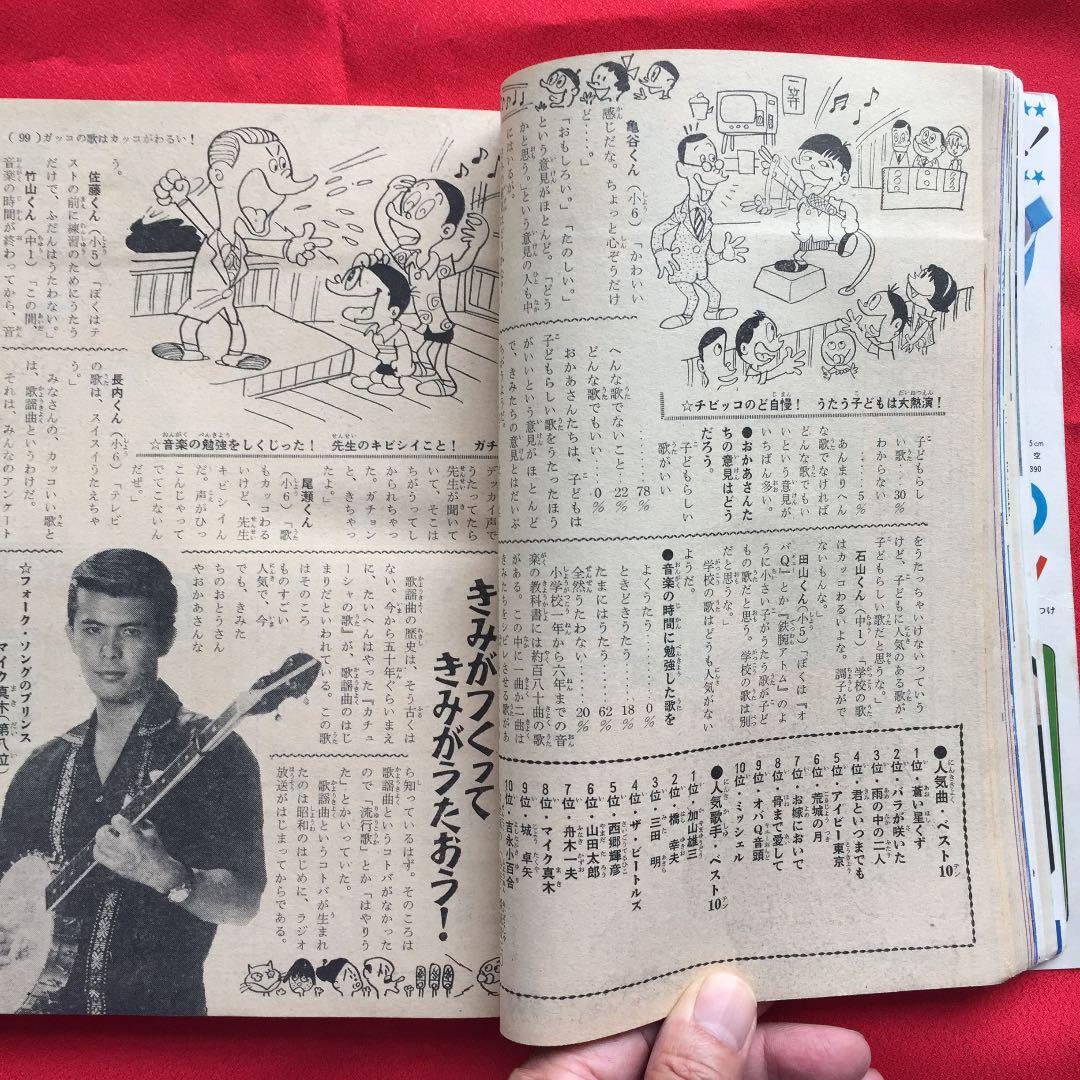 一等
☆チビッコのど自慢!　うたう子どもは大熱演!
亀谷くん(小6)「かわいい
感じだな。ちょっと心ぞうだけ
ど……。」
「おもしろい。」「たのしい。」
という意見がほとんど。「どう
かと思う。」という意見の人も中
にはいるが。
子どもらし
い歌…30%
わからない
…………5%
あんまりへん
な歌でなければ
どんな歌でもい
いという意見が
いちばん多い。
●おかあさんた
ちの意見はどう
だろう。
子どもらしい
歌がいい
……………78%
へんな歌でないこと…22%
どんな歌でもいい……0%
おかあさんたちは、子どもは
子どもらしい歌をうたったほう
がいいという意見がほとんど
で、きみたちの意見とはだいぶ
をうたっちゃいけないっていう
けど、子どもに人気のある歌が
子どもらしい歌だと思うな。」
石山くん(中1)「学校の歌
はカッコわるいよな。調子がで
ないもんな。」
田山くん(小5)「ぼくは『オ
バQ』とか『鉄腕アトム』のよ
うに小さい子がうたう歌が子ど
もの歌だと思う。学校の歌は別
だと思うな。」
学校の歌はどうも人気がない
ようだ。
●音楽の時間に勉強した歌を
よくうたう…………0%
ときどきうたう……18%
たまにはうたう……62%
全然うたわない……20%
小学校一年から六年までの音
楽の教科書には約百八十曲の歌
がある。この中に一曲か二曲は
きみたちをシビレさせる歌があ
●人気曲・ベスト10
1位・蒼い星くず
2位・バラが咲いた
3位・雨の中の二人
4位・君といつまでも
5位・アイビー東京
6位・荒城の月
7位・お嫁においで
8位・骨まで愛して
9位・オバQ音頭
10位・ミッシェル
●人気歌手・ベスト10
1位・加山雄三
2位・橋　幸夫
3位・三田　明
4位・ザ・ビートルズ
5位・西郷輝彦
6位・山田太郎
7位・舟木一夫
8位・マイク真木
9位・城　卓矢
10位・吉永小百合
(99)ガッコの歌はカッコがわるい!
☆音楽の勉強をしくじった!　先生のキビシイこと!　ガチ
う。
佐藤くん(小5)「ぼくはテ
ストの前に練習のためにうたう
だけで、ふだんはうたわない。」
竹山くん(中1)「この間、
音楽の時間が終わってから、音
デッカイ声で
うたってたら
先生が聞いて
いて、そこは
かられちゃっ
た。ガチョン
と、きちゃっ
たよ。」
尾瀬くん
(小6)「歌
もカッコわる
いけど、先生
キビシイん
だ。声がひっ
こんじゃって
だぜ。」
長内くん(小6)「テレビ
の歌は、スイスイうたえちゃ
う。」
みなさんの、カッコいい歌と
は、歌謡曲というわけだ。
それは、みんなのアンケート
きみがつくって
きみがうたおう!
歌謡曲の歴史は、そう古くは
ない。今から五十年ぐらいまえ
に、たいへんはやった『カチュ
ーシャの歌』が、歌謡曲のはじ
まりだといわれている。この歌
はそのころ
ものすごい
人気で、今
でも、きみた
ちのおとうさん
やおかあさんな
ら知っているはず。そのころは
歌謡曲というコトバがなかった
ので、「流行歌」とか「はやりう
た」とかいっていた。
歌謡曲というコトバが生まれ
たのは昭和のはじめに、ラジオ
放送がはじまってからである。
☆フォーク・ソングのプリンス
マイク真木(第八位)
5cm
空
390
つけ